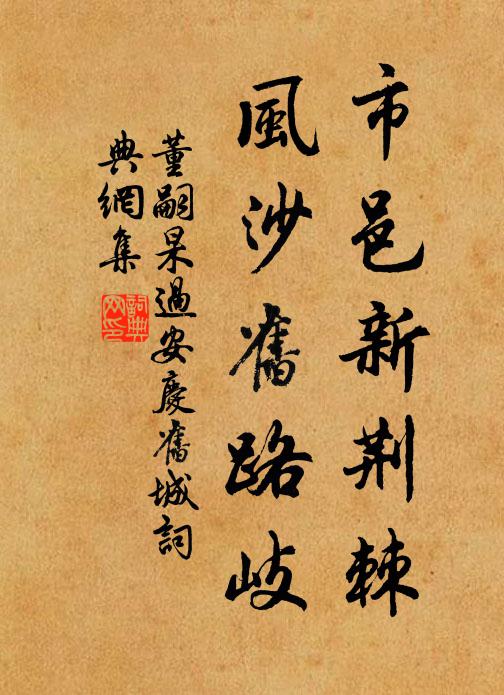 市邑新荆棘
風沙舊路歧
董嗣杲過安慶舊城詞
典網集
詞典網印